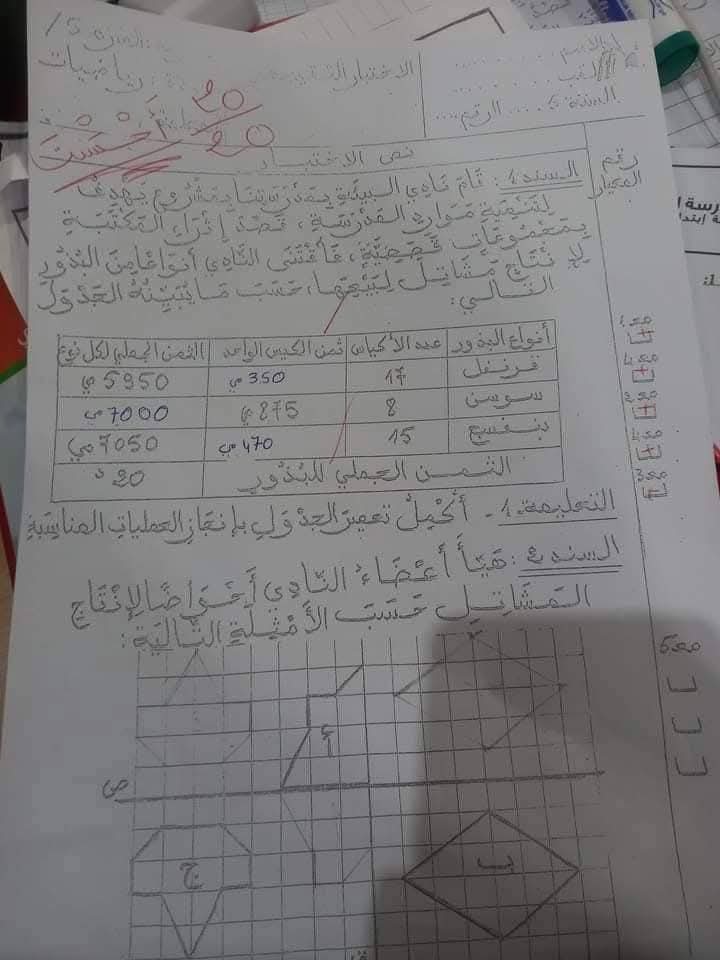 الاسم
اللقب
السنة 5 .... الرقم....
الاختبار
رياضيات
20
20
أحسنت
نص الاختبار
رقم المعيار
السند 1: قَامَ نَادِي البِيئَةِ بِمَدْرَسَتِنَا بِمَشْرُوعٍ يَهْدِفُ
لِتَنْمِيَةِ مَوَارِدِ المَدْرَسَةِ، قَصْدَ إِثْرَاءِ المَكْتَبَةِ
بِمَجْمُوعَاتٍ قَصَصِيَّةٍ، فَاقْتَنَى النَّادِي أَنْوَاعًا مِنَ البُذُورِ
لِإِنْتَاجِ مَشَاتِلَ لِبَيْعِهَا، حَسَبَ مَا يُبَيِّنُهُ الجَدْوَلُ
التَّالِي:
أنواع البذور | عدد الأكياس | ثمن الكيس الواحد | الثمن الجملي لكل نوع
قرنفل | 17 | 350 مي | 5950 مي
سوسن | 8 | 875 مي | 7000 مي
بنفسج | 15 | 470 مي | 7050 مي
الثمن الجملي للبذور | 20 د
التعليمة 1 - أُكْمِلُ تعمير الجدول بإنجاز العمليات المناسبة
السند 2: هَيَّأَ أَعْضَاءُ النَّادِي أَحْوَاضًا لِإِنْتَاجِ
المَشَاتِلِ حَسَبَ الأَمْثِلَةِ التَّالِيَةِ:
مع1
مع4
مع2
مع4
مع3
مع5
أ
ص
ج
ب